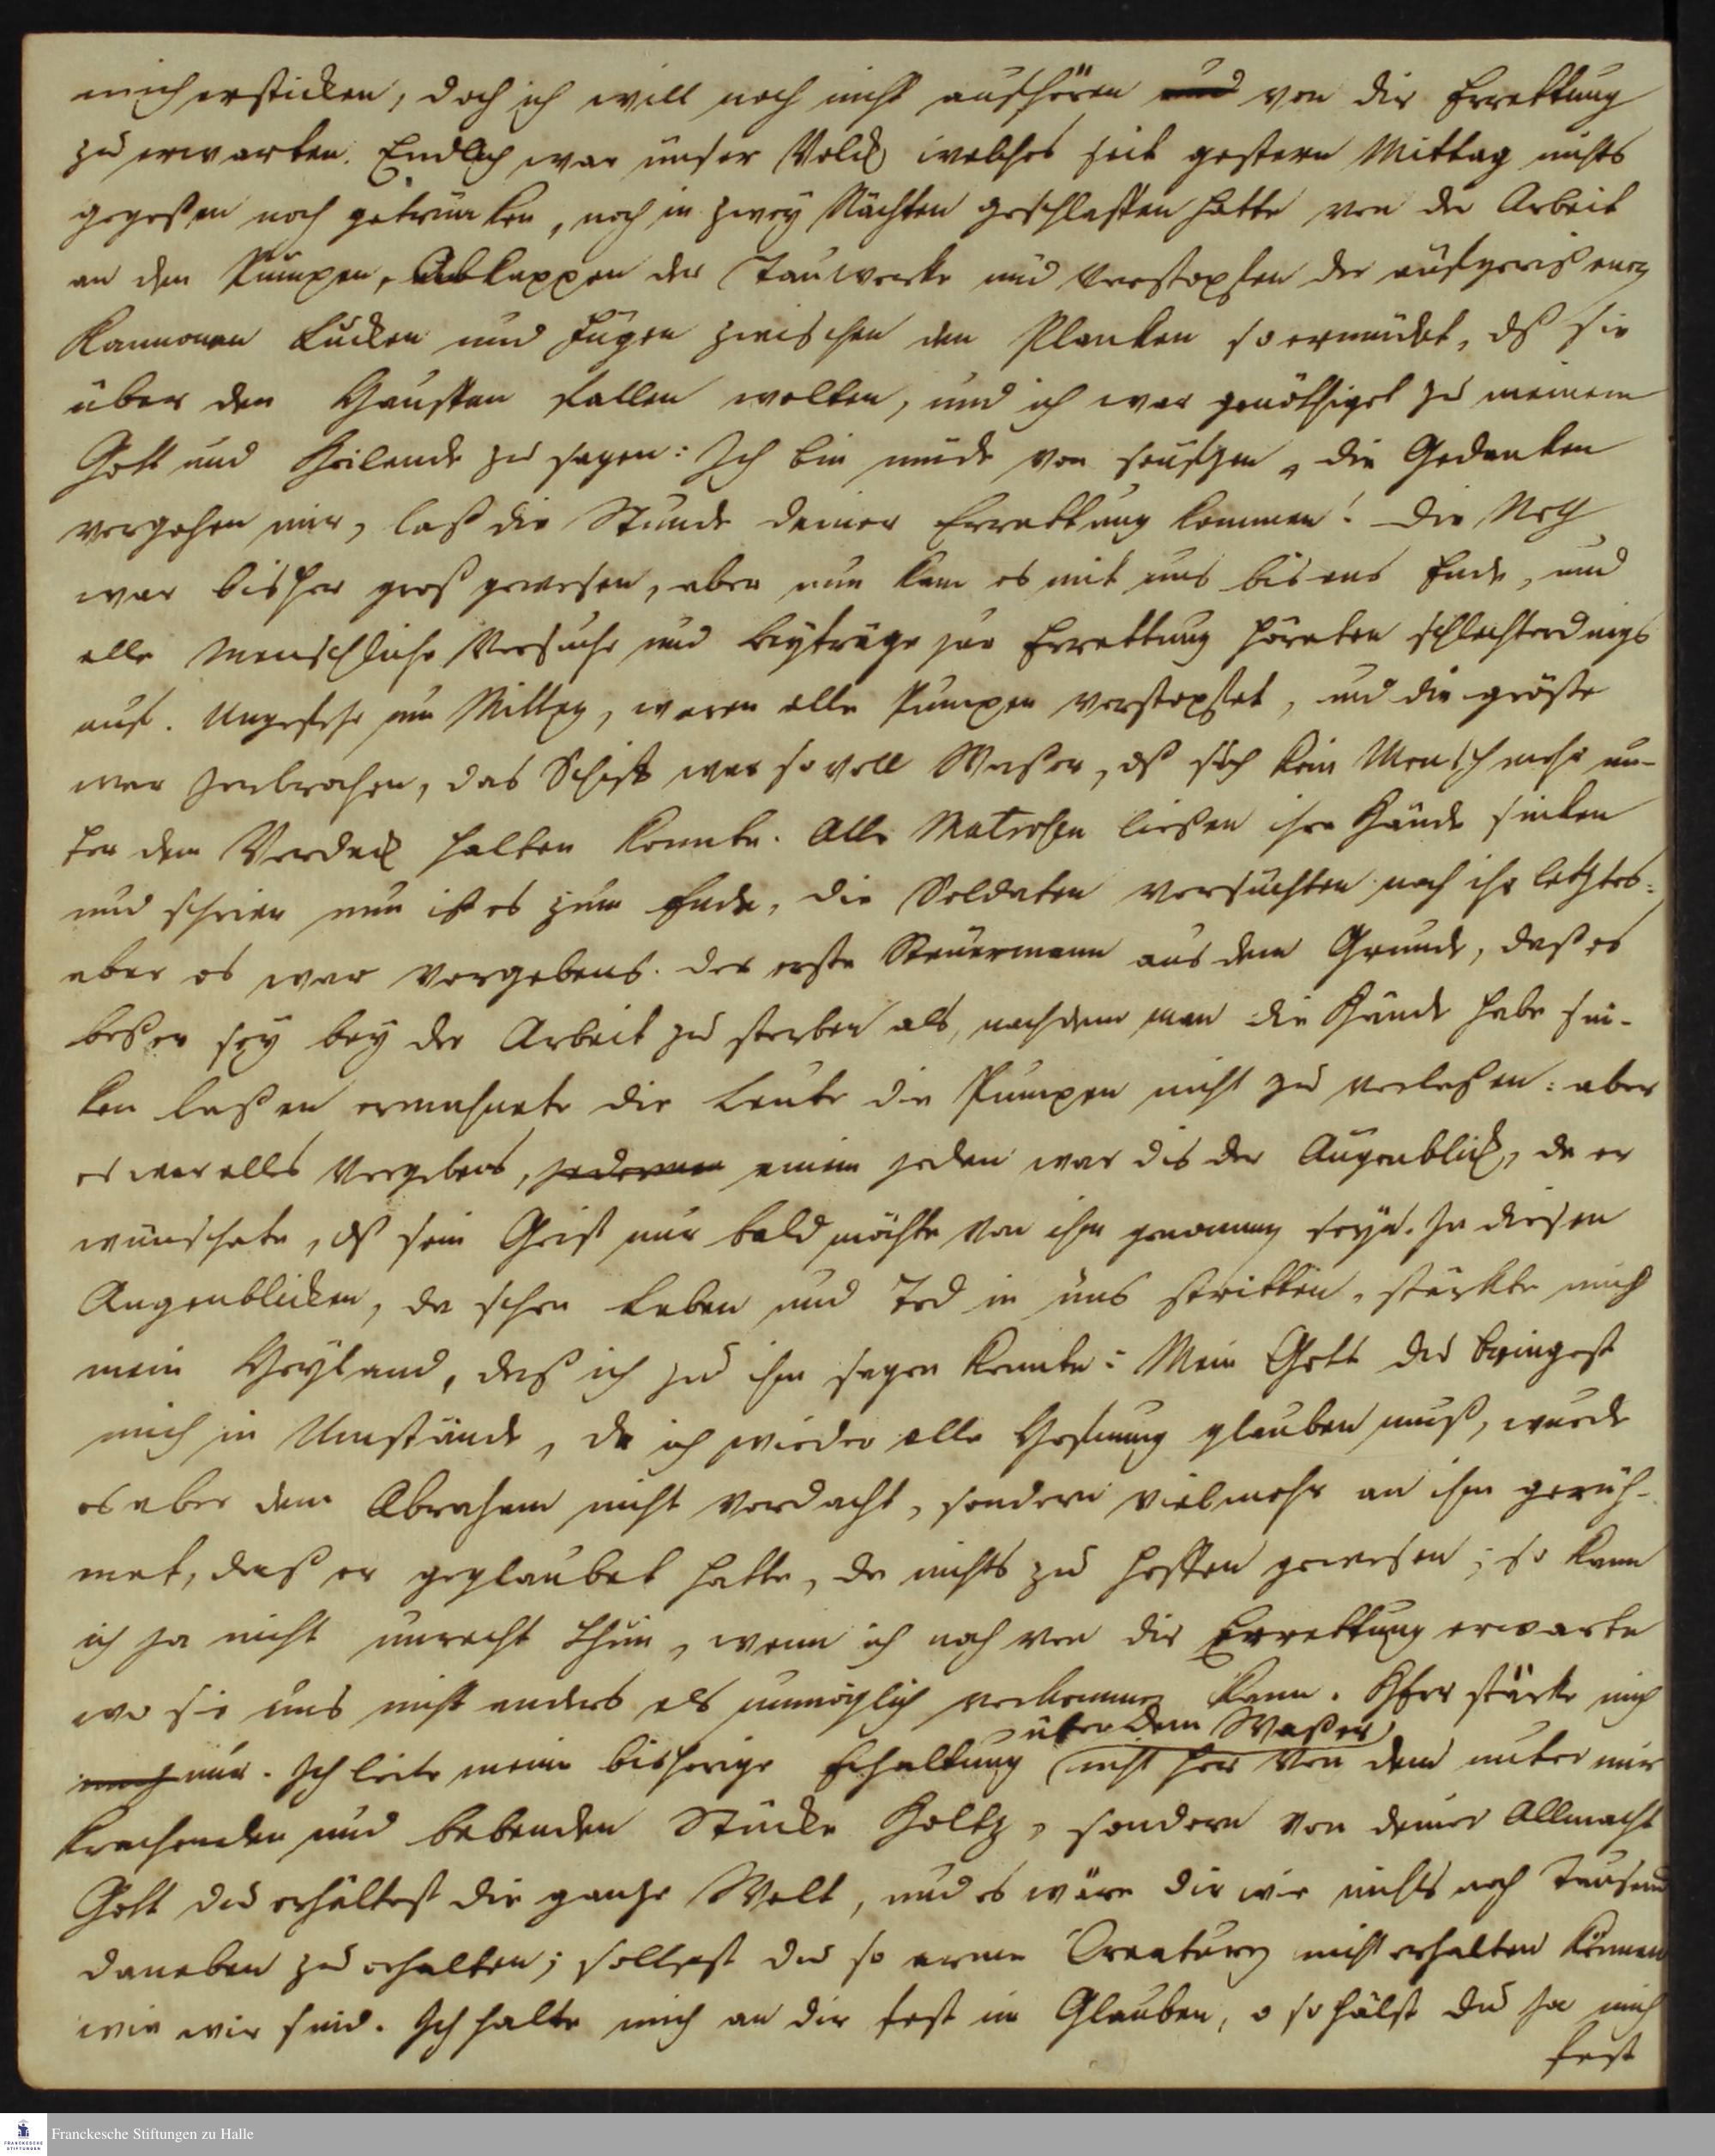 mich ersticken, doch ich will noch nicht aufhören und von dir Errettung
zu erwarten. Endlich war unser Volck welches seit gestern Mittag nichts
gegeßen noch getruncken, noch in zwey Nächten geschlaffen hatte von der Arbeit
an den Pumpen, Abkappen der Tauwercke und Verstopfen der aufgerißenen
Kannonen Lucken und Fugen zwischen den Plancken so ermüdet, dß sie
über den Hauffen fallen wolten, und ich war genöthiget zu meinem
Gott und Heilande zu sagen: Ich bin müde von seufzen, die Gedancken
vergehen mir, laß die Stunde deiner Errettung kommen! Die Noth
war bisher groß gewesen, aber nun kam es mit uns bis ans Ende, und
alle menschliche Versuche und Beyträge zur Errettung höreten schlechterdings
auf. Ungefehr um Mittag, waren alle Pumpen verstopfet, und die gröste
war zerbrochen, das Schiff war so voll Waßer, dß sich kein Mensch mehr un-
ter dem Verdeck halten konnte. Alle Matrosen ließen ihre Hände sincken
und schrien nun ist es zum Ende, die Soldaten versuchten noch ihr letztes:
aber es war vergebens. der erste Steuermann aus dem Grunde, daß es
beßer sey bey der Arbeit zu sterben als, nachdem man die Hände habe sin-
ken laßen ermahnete die Leute die Pumpen nicht zu verlaßen: aber
es war alles vergebens, jederman einem jeden war dis der Augenblick, da er
wünschete, dß sein Geist nur bald möchte von ihm genommen seyn. In diesen
Augenblicken, da schon Leben und Tod in uns stritten, stärckte mich
mein Heyland, daß ich zu ihm sagen konnte: Mein Gott du bringest
mich in Umstände, da ich wieder alle Hofnung glauben muß, wurde
es aber dem Abraham nicht verdacht, sondern vielmehr an ihm gerüh-
met, daß er geglaubet hatte, da nichts zu hoffen gewesen; so kann
ich ja nicht unrecht thun, wenn ich noch von dir Errettung erwarte
wo sie uns nicht anders als unmöglich vorkommen kann. Herr stärcke mich
über dem Waßer
nur. Ich leite meine bisherige Erhaltung nicht her von dem unter mir
krachenden und bebenden Stücke Holtz, sondern von deiner Allmacht
Gott du erhältest die gantze Welt, und es wäre dir wie nichts noch Tausend
daneben zu erhalten; soltest du so arme Creaturen nicht erhalten können
wie wir sind. Ich halte mich an dir fest im Glauben, o so hälst du ja mich
fest
Franckesche Stiftungen zu Halle